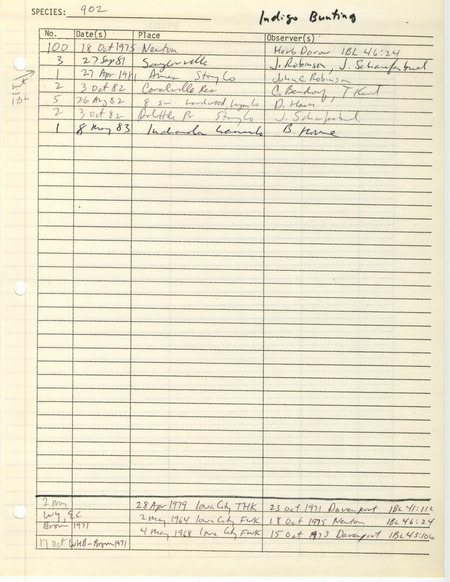 SPECIES: 902 Indigo Bunting
No. Date(s) Place Observer(s)
100 18 Oct 1975 Newton Herb Dorow IBL 46:24
3 27 Sep 81 Saylorville J. Robinson, J. Schaufenbuel
1 27 Apr 1981 Ames Story Co John C Robinson
2 3 Oct 82 Coralville Res C. Bendorf, T Kent
5 26 Aug 82 8 sw Lockwood, Lyon Co D.
2 3 Oct 82 Dolittle Pr Story Co J. Schaufenbuel
1 8 May 83 Indianola B.
IBL
28 Apr 1979 Iowa City THK 23 Oct 1971 Davenport IBL 41:112
2 May 1964 Iowa City FWK 18 Oct 1975 Newton IBL 46:24
Brown 1971 4 May 1968 Iowa City FWK 15 Oct 1973 Davenport IBL 43:106
17 Oct WHB-Brown 1971